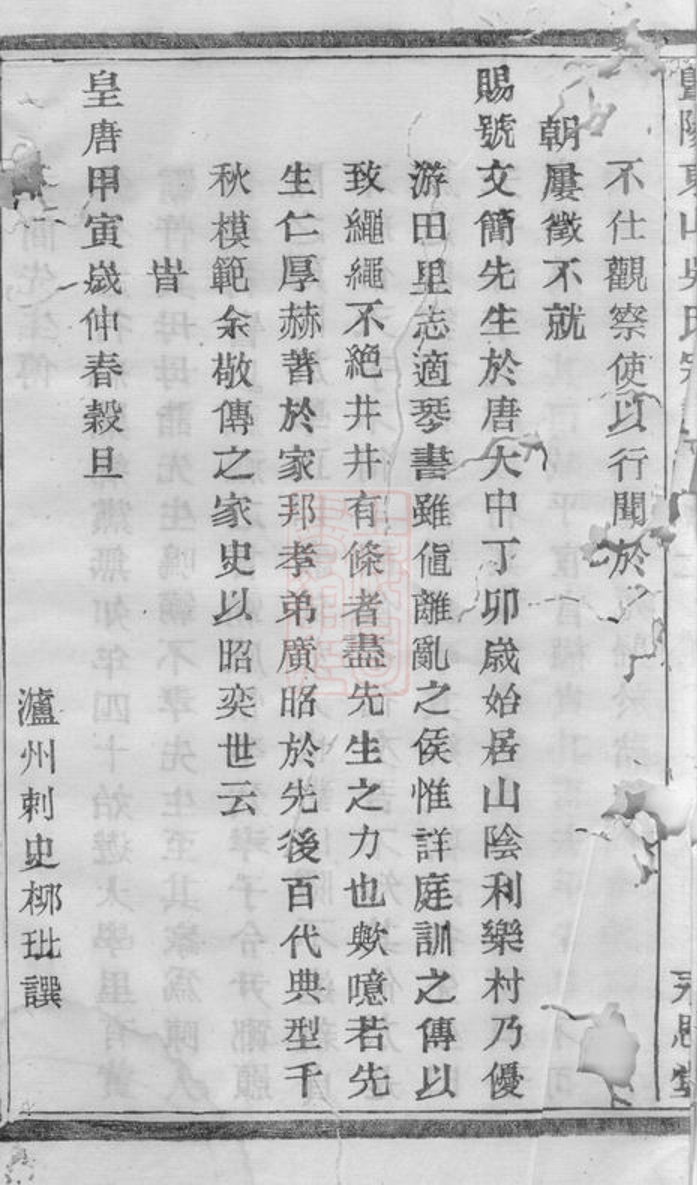 暨陽東山吳氏宗
不仕觀察使以行聞於
朝屢徵不就
賜號文簡先生於唐大中丁卯歲始居山陰利樂村乃優
游田里志適琴書雖値離亂之俟惟詳庭訓之傳以
致繩繩不絶井井有條者盡先生之力也歟噫若先
生仁厚赫著於家邦孝弟廣昭於先後百代典型千
秋模範余敬傳之家史以昭奕世云
旹
皇唐甲寅歲仲春穀旦
瀘州刺史柳玭譔